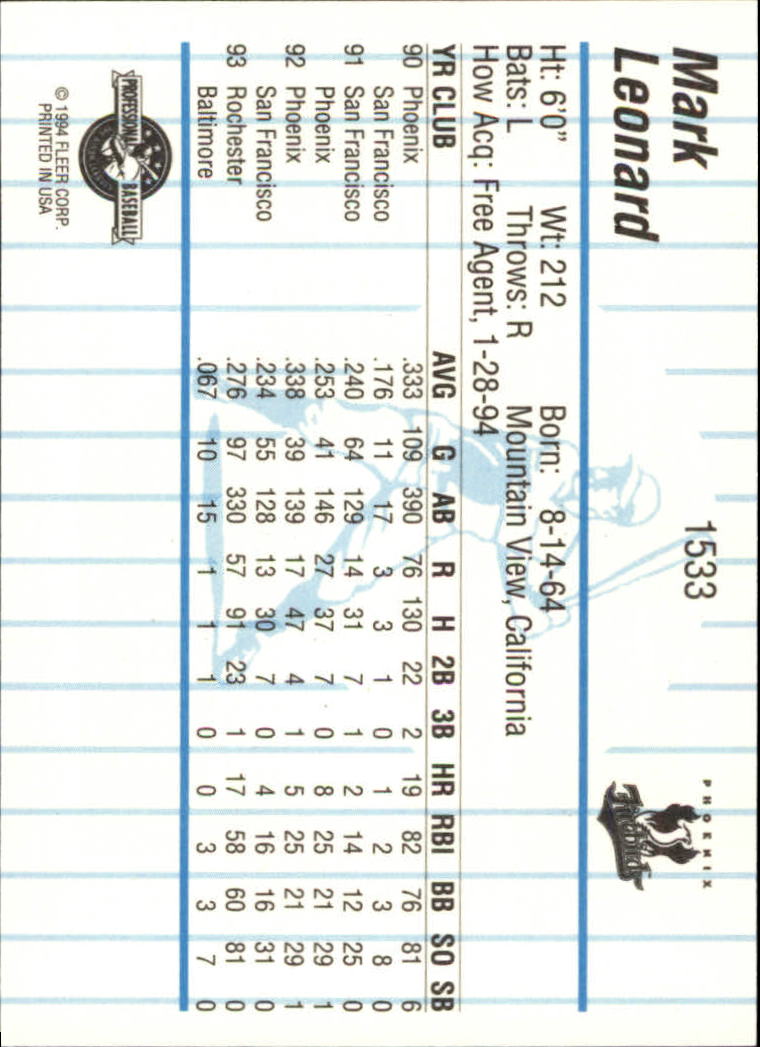 Mark
Leonard
1533
PHOENIX
Firebirds
Ht: 6'0" Wt: 212 Born: 8-14-64
Bats: L Throws: R Mountain View, California
How Acq: Free Agent, 1-28-94
YR CLUB AVG G AB R H 2B 3B HR RBI BB SO SB
90 Phoenix .333 109 390 76 130 22 2 19 82 76 81 6
San Francisco .176 11 17 3 3 1 0 1 2 3 8 0
91 San Francisco .240 64 129 14 31 7 1 2 14 12 25 0
Phoenix .253 41 146 27 37 7 0 8 25 21 29 1
92 Phoenix .338 39 139 17 47 4 1 5 25 21 29 1
San Francisco .234 55 128 13 30 7 0 4 16 16 31 0
93 Rochester .276 97 330 57 91 23 1 17 58 60 81 0
Baltimore .067 10 15 1 1 1 0 0 3 3 7 0
PROFESSIONAL BASEBALL
© 1994 FLEER CORP.
PRINTED IN USA